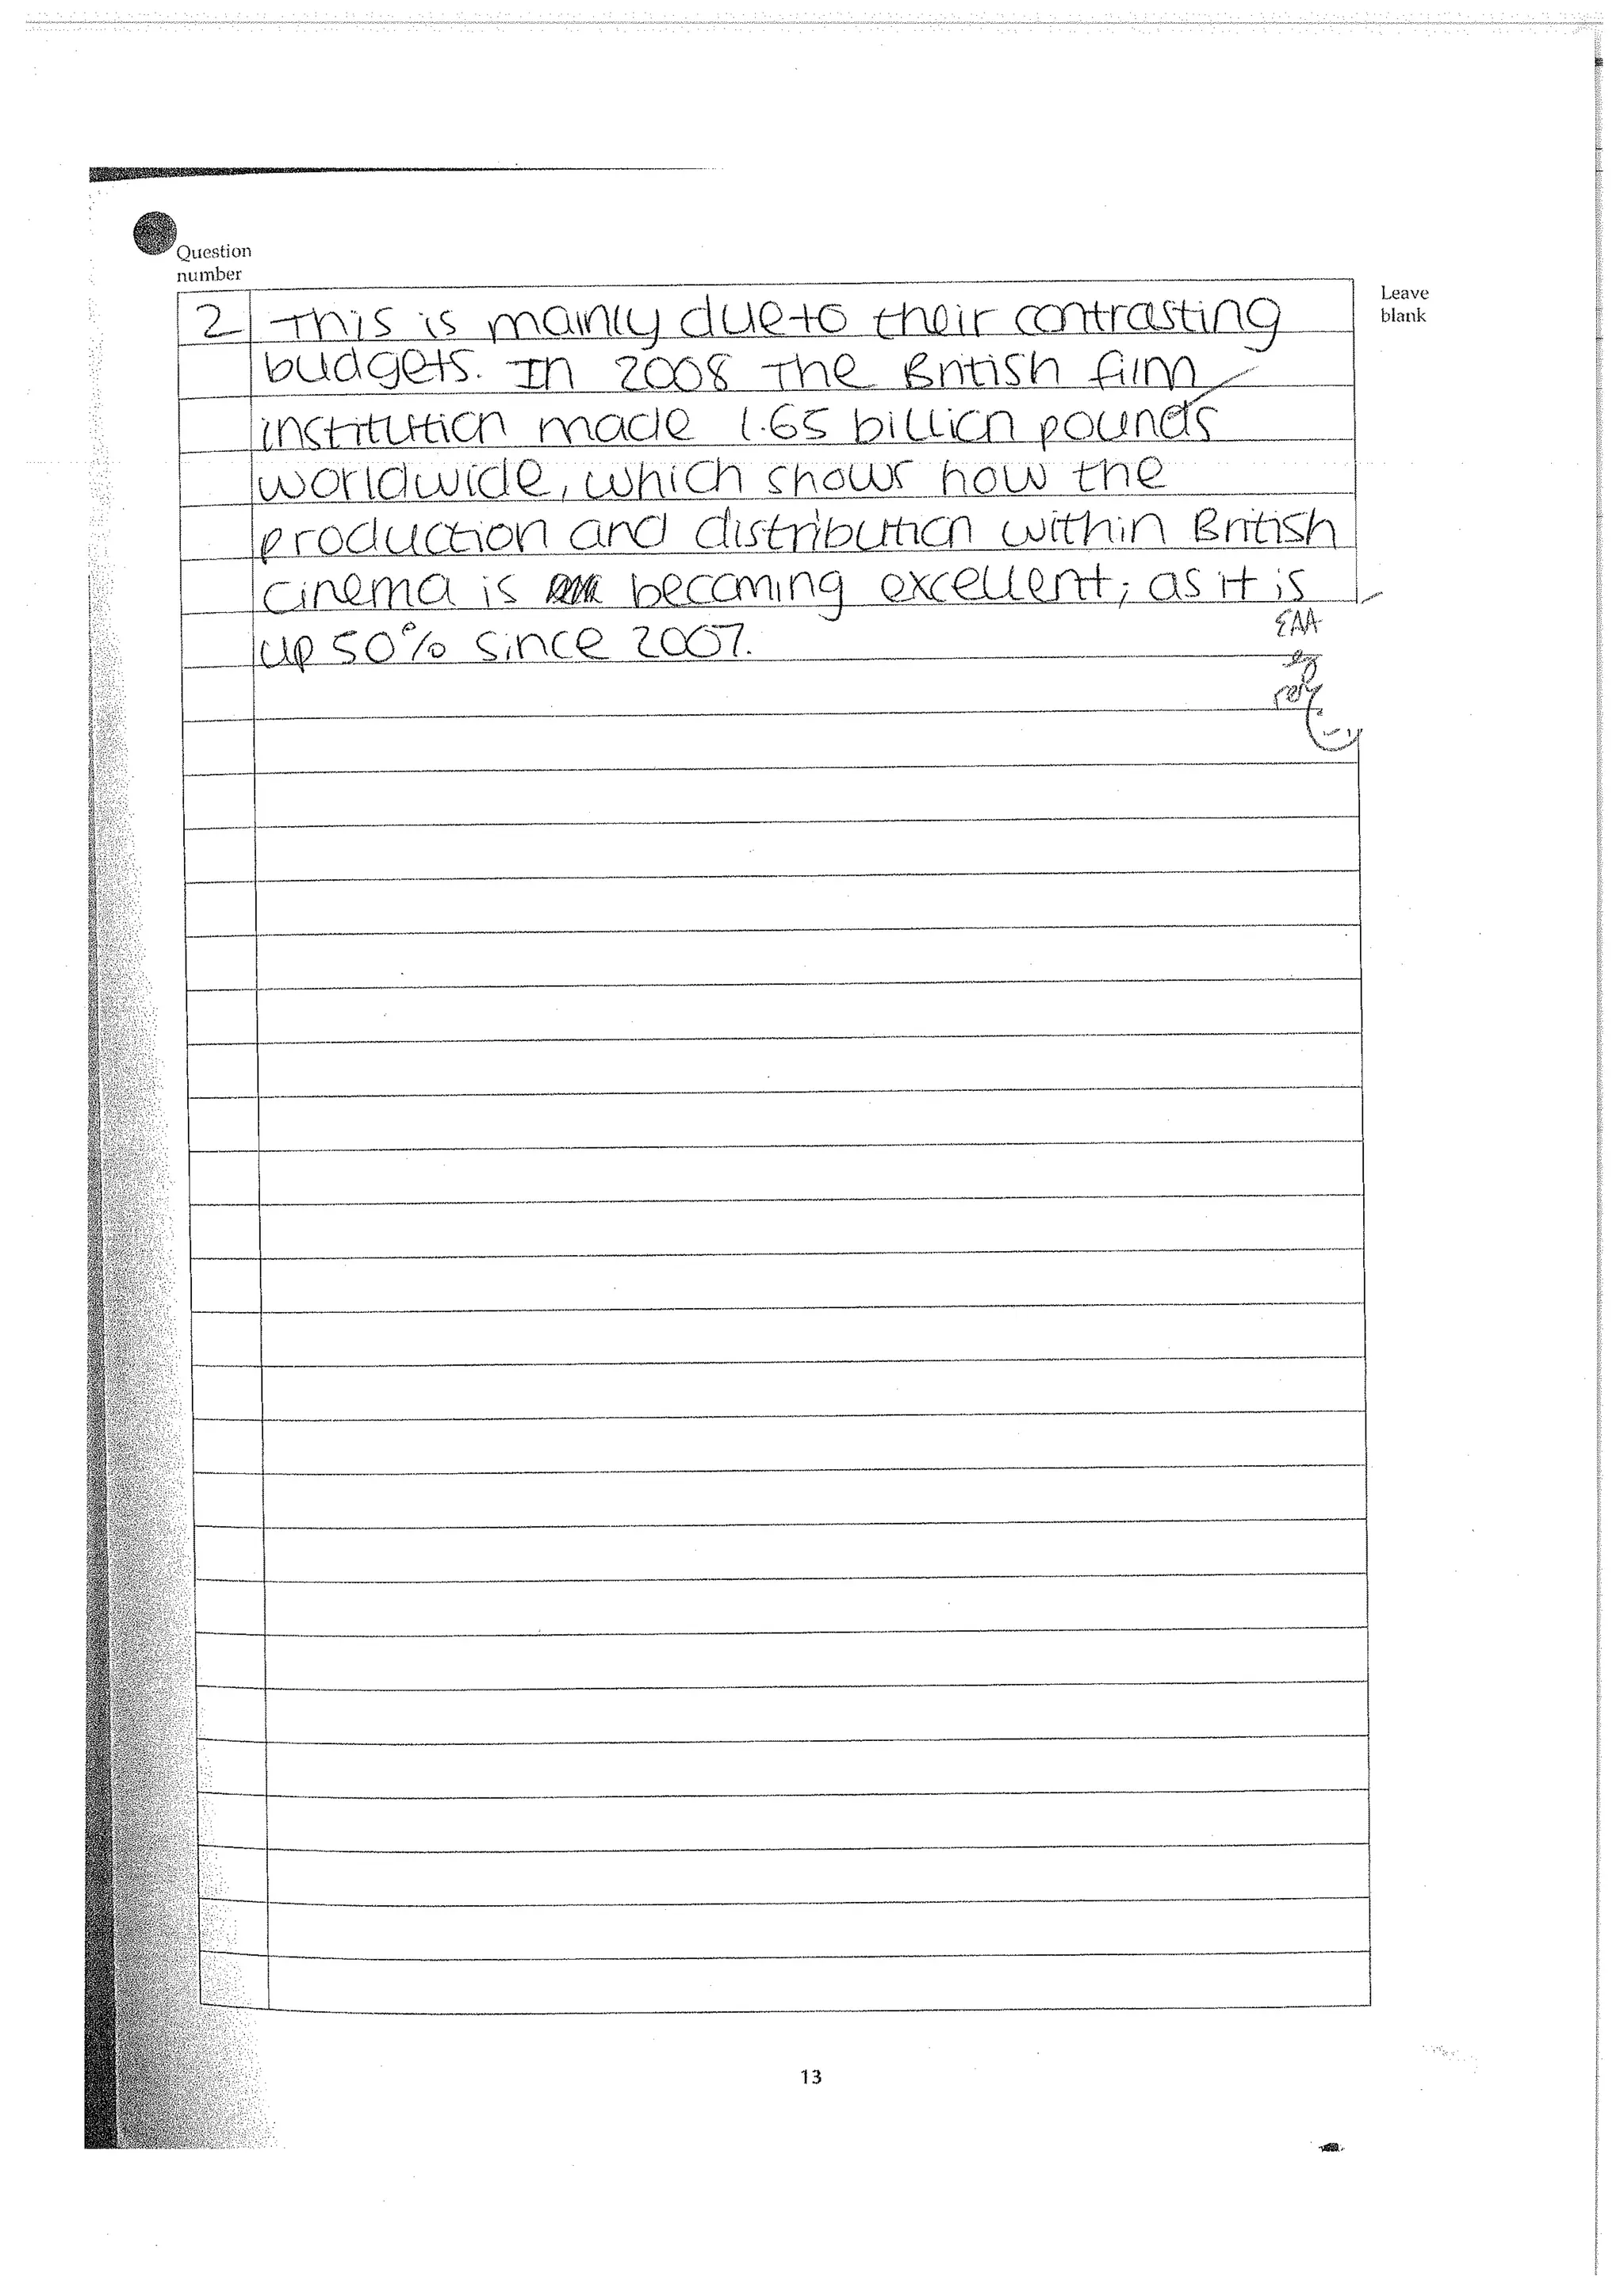 Question
number
Leave
blank
2 This is mainly due to their contrasting
budgets. In 2008 The British film
institution made 1.65 billion pounds
worldwide, which shows how the
production and distribution within British
cinema is becoming excellent; as it is
up 50% since 2007.
EAA
eg
13